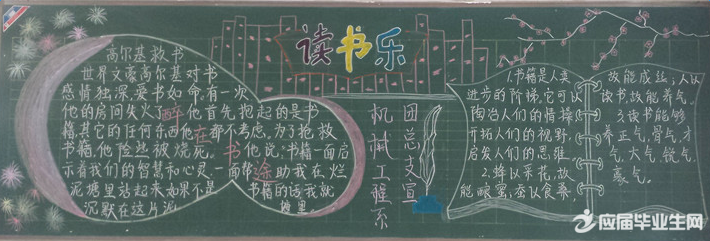 读书乐
高尔基救书
世界文豪高尔基对书
感情独深,爱书如命,有一次
他的房间失火了,他首先抱起的是书
籍,其它的任何东西他都不考虑,为了抢救
书籍,他险些被烧死。他说:书籍一面启
示着我们的智慧和心灵,一面帮助我在烂
泥塘里站起来如果不是书籍的话我就
沉默在这片泥塘里
醉在书海
团总支宣
机械工程系
1.书籍是人类
进步的阶梯,它可以
陶冶人们的情操
开拓人们的视野,
启发人们的思维
2.蜂以采花,故
能酿蜜,蚕以食桑,
故能成丝,人以
读书,故能养气。
3.读书能够
养正气,骨气,才
气,大气,锐气,
豪气。
应届毕业生网